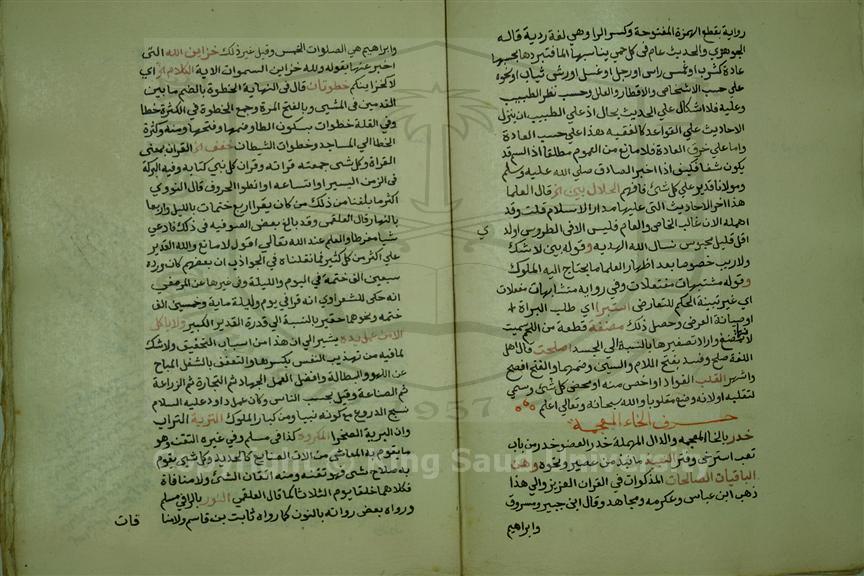 رواية بقطع الهمزة المفتوحة وكسر الرا وهي لغة ردية قاله
الجوهري والحديث عام في كل حمى يناسبها الما فتبردها بحسبها
عادة كشرب او غمس راس او رجل او غسل او رش ثياب او نحوه
على حسب الاشخاص والاقطار والعلل وحسب نظر الطبيب
وعليه فلا اشكال على الحديث بحال اذ على الطبيب ان ينزل
الاحاديث على القواعد كالفقيه هذا على حسب العادة
واما على خرق العادة فلا مانع من العموم مطلقا اذ السم قد
يكون شفا فكيف اذا اخبر الصادق صلى الله عليه وسلم
ومولانا قدير على كل شئ فافهم الحلال بين الخ قال العلما
هذا احد الاحاديث التي عليها مدار الاسلام قلت وقد
اهمله الان غالب الخاص والعام فليس الا في الطروس اولدي
اقل قليل محبوس نسال الله الهداية وقوله بين لا شك
ولا ريب خصوصا بعد اظهار العلما ما يحتاج اليه الملوك
وقوله مشتبهات مفتعلات وفي رواية متشابهات مفعلات
اي غير بينة الحكم للتعارض استبرا اي طلب البراة
او صيانة العرض وحصل ذلك مضغة قطعة من اللحم سميت
لانها تمضغ وارادا تصغيرها بالنسبة الى الجسد اصلحت قال اهل
اللغة صلح وفسد بفتح اللام والسين وضمهما والفتح افصح
واشهر القلب الفواد او اخص منه او محض كل شئ وسمي
لتقلبه او لانه وضع مقلوبا والله سبحانه وتعالى اعلم
حرف الخاء المعجمة
خدر بالخا المعجمة والدال المهملة خدر العضو خدر من باب
تعب استرخى وفتر النبيذ ما نبذ من عصير ونحوه وهن
الباقيات الصالحات المذكوات في القران العزيز والى هذا
ذهب ابن عباس وعكرمه ومجاهد وقال ابن جبير ومسروق
وابراهيم
وابراهيم هي الصلوات الخمس وقيل غير ذلك خزاين الله التي
اخبر عنها بقوله ولله خزاين السموات الاية الكلام الخ اي
لا كخزاينكم خطوتان قال في النهاية الخطوة بالضم ما بين
القدمين في المشي وبالفتح المرة وجمع الخطوة في الكثرة خطا
وفي القلة خطوات بسكون الطا وضمها وفتحها ومنه وكثرة
الخطا الى المساجد وخطوات الشيطان خفف الخ القران بمعنى
القراة وكل شئ جمعته قراته وقران كل نبي كتابه وفيه البركة
في الزمن اليسير او اتساعه او انطوا الحروف قال النووي
اكثر ما بلغنا من ذلك من كان يقرا اربع ختمات بالليل واربعا
بالنهار قال العلقمي وقد بالغ بعض الصوفيه في ذلك فادعى
شيا مفرطا والعلم عند الله تعالى اقول لا مانع والله القدير
على اكثر من كل كثير فما نقلناه في الجواذب ان بعضهم كان ورده
سبعين الف ختمة في اليوم والليلة وفي غيرها عن المرصفي
انه حكى للشعراوي انه قرا في يوم وليلة ماية وخمسين الف
ختمه ونحوهما حقير بالنسبة الى قدرة القدير الكبير ولا ياكل
الا من عمل يده يشير الى ان هذا من اسباب التخفيف ولا شك
لما فيه من تهذيب النفس بكسرها والتعفف بالشغل المباح
عن اللهو والبطالة وافضل العمل الجهاد ثم التجارة ثم الزراعة
ثم الصناعة وقيل بحسب الناس وكان عمل داود عليه السلام
نسج الدروع مع كونه نبيا ومن كبار الملوك التربة التراب
وان البرية الصخرا المكروه كذا في مسلم وفي غيره التقن وهو
ما يقوم به المعاش من الات الصنايع كالحديد وكل شئ يقوم
به صلاح شئ فهو تقنه ومنه اتقان الشئ ولا منافاة
فكلاهما خلقا يوم الثلاثا كما قال العلقمي النور بالرا في مسلم
ورواه بعض رواته بالنون كما رواه ثابت بن قاسم ولامنا
فات